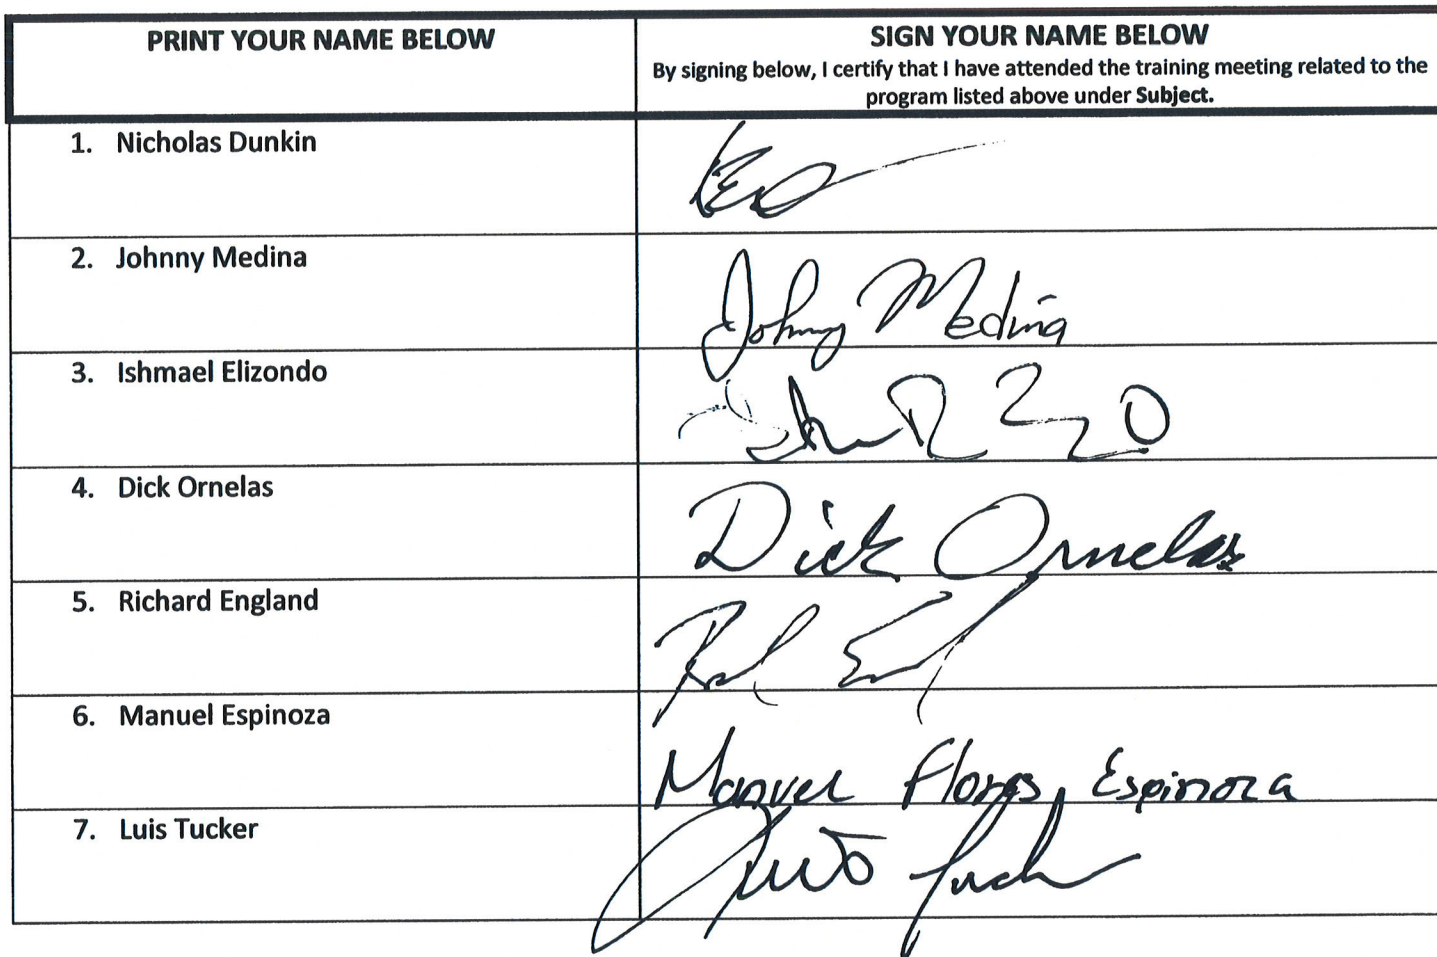 PRINT YOUR NAME BELOW
SIGN YOUR NAME BELOW
By signing below, I certify that I have attended the training meeting related to the
program listed above under Subject.
1. Nicholas Dunkin
2. Johnny Medina
Johnny Medina
3. Ishmael Elizondo
4. Dick Ornelas
Dick Ornelas
5. Richard England
6. Manuel Espinoza
Manuel Flores Espinoza
7. Luis Tucker